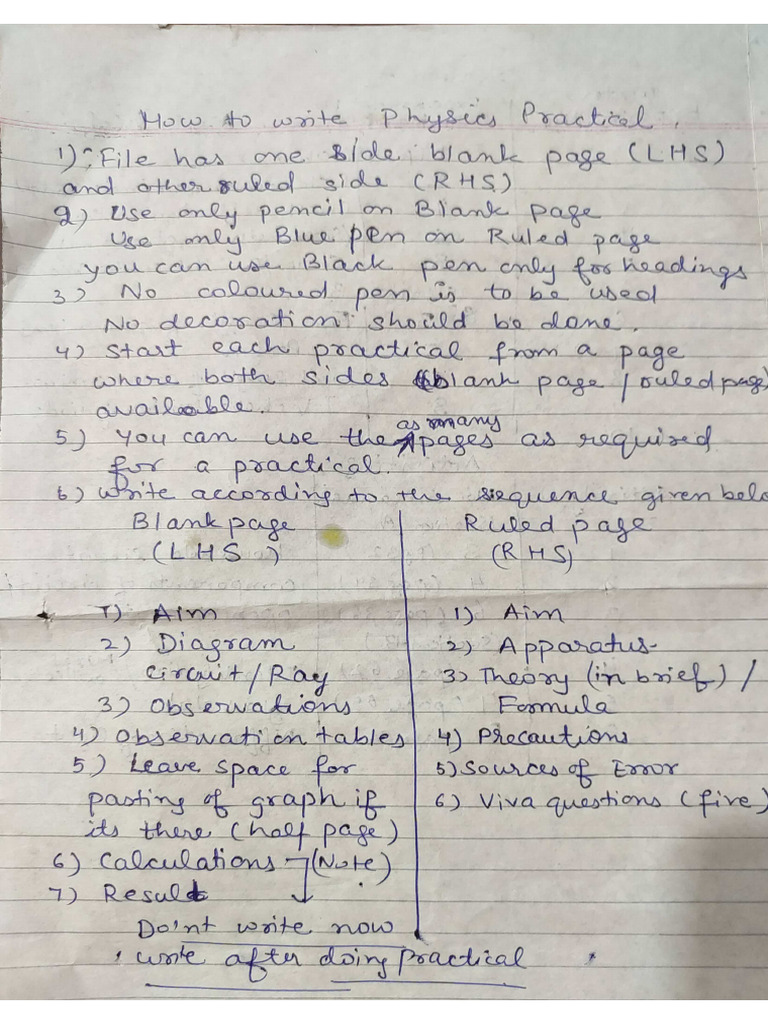 How to write Physics Practical.
1) File has one side blank page (LHS)
and other ruled side (RHS)
2) Use only pencil on Blank page
Use only Blue pen on Ruled page
you can use Black pen only for headings
3) No coloured pen is to be used
No decoration should be done.
4) Start each practical from a page
where both sides (blank page / ruled page)
available.
5) You can use the as many pages as required
for a practical.
6) Write according to the sequence given belo
Blank page Ruled page
(LHS) (RHS)
1) Aim 1) Aim
2) Diagram 2) Apparatus
Circuit / Ray 3) Theory (in brief) /
3) Observations Formula
4) Observation tables 4) Precautions
5) Leave space for 5) Sources of Error
pasting of graph if 6) Viva questions (five)
its there (half page)
6) Calculations (Note)
7) Result
Do'nt write now
write after doing Practical